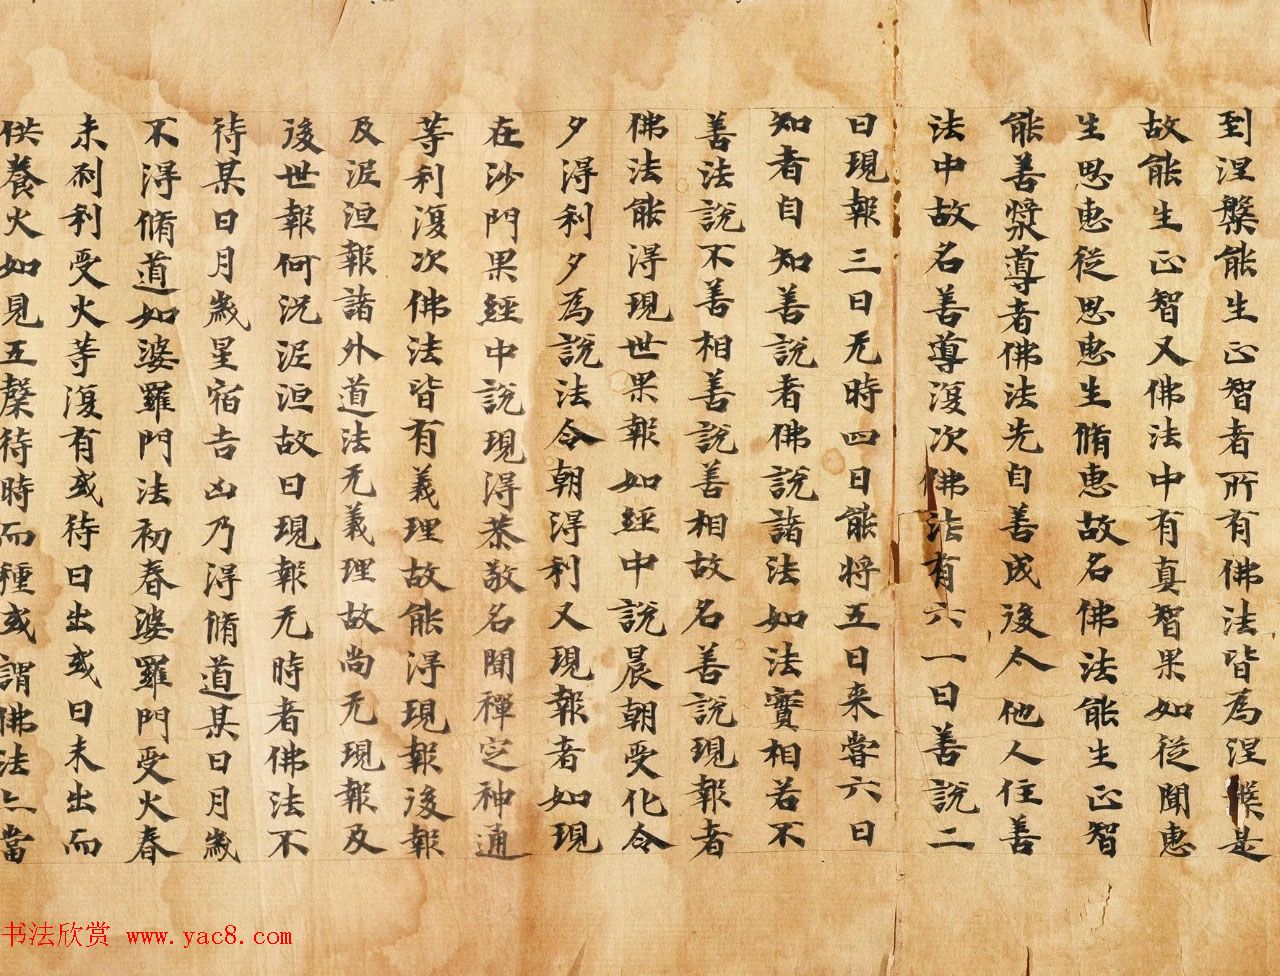 到涅槃能生正智者所有佛法皆為涅槃是
故能生正智又佛法中有真智果如從聞惠
生思惠從思惠生脩惠故名佛法能生正智
能善奬導者佛法先自善成後令他人住善
法中故名善導復次佛法有六一曰善說二
曰現報三曰无時四曰能將五曰来嘗六曰
知者自知善說者佛說諸法如法實相若不
善法說不善相善說善相故名善說現報者
佛法能得現世果報如經中說晨朝受化令
夕得利夕為說法令朝得利又現報者如現
在沙門果經中說現得恭敬名聞禪定神通
等利復次佛法皆有義理故能得現報後報
及泥洹報諸外道法无義理故尚无現報及
後世報何況泥洹故曰現報无時者佛法不
待某日月歲星宿吉凶乃得脩道某日月歲
不得脩道如婆羅門法初春婆羅門受火春
末刹利受火等復有或待日出或日未出而
供養火如見五穀待時而種或謂佛法亦當
书法欣赏 www.yac8.com